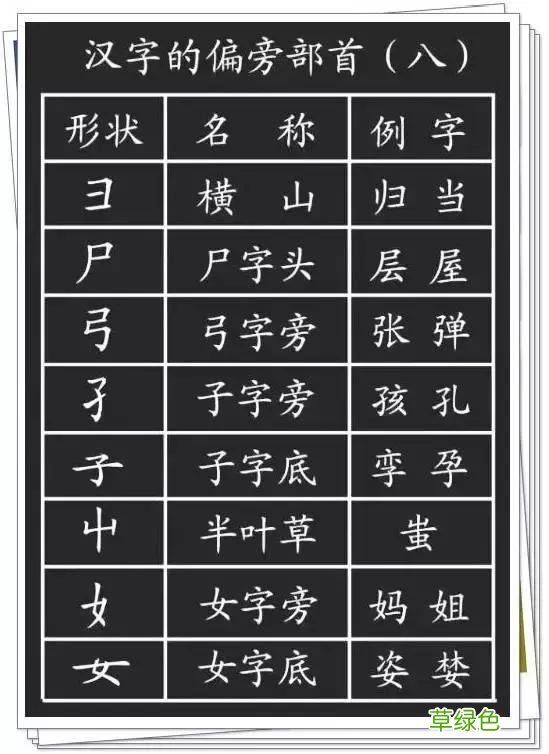 汉字的偏旁部首（八）
形状 名 称 例 字
彐 横 山 归 当
尸 尸字头 层 屋
弓 弓字旁 张 弹
孑 子字旁 孩 孔
子 子字底 孪 孕
屮 半叶草 蚩
女 女字旁 妈 姐
女 女字底 姿 婪
草绿色